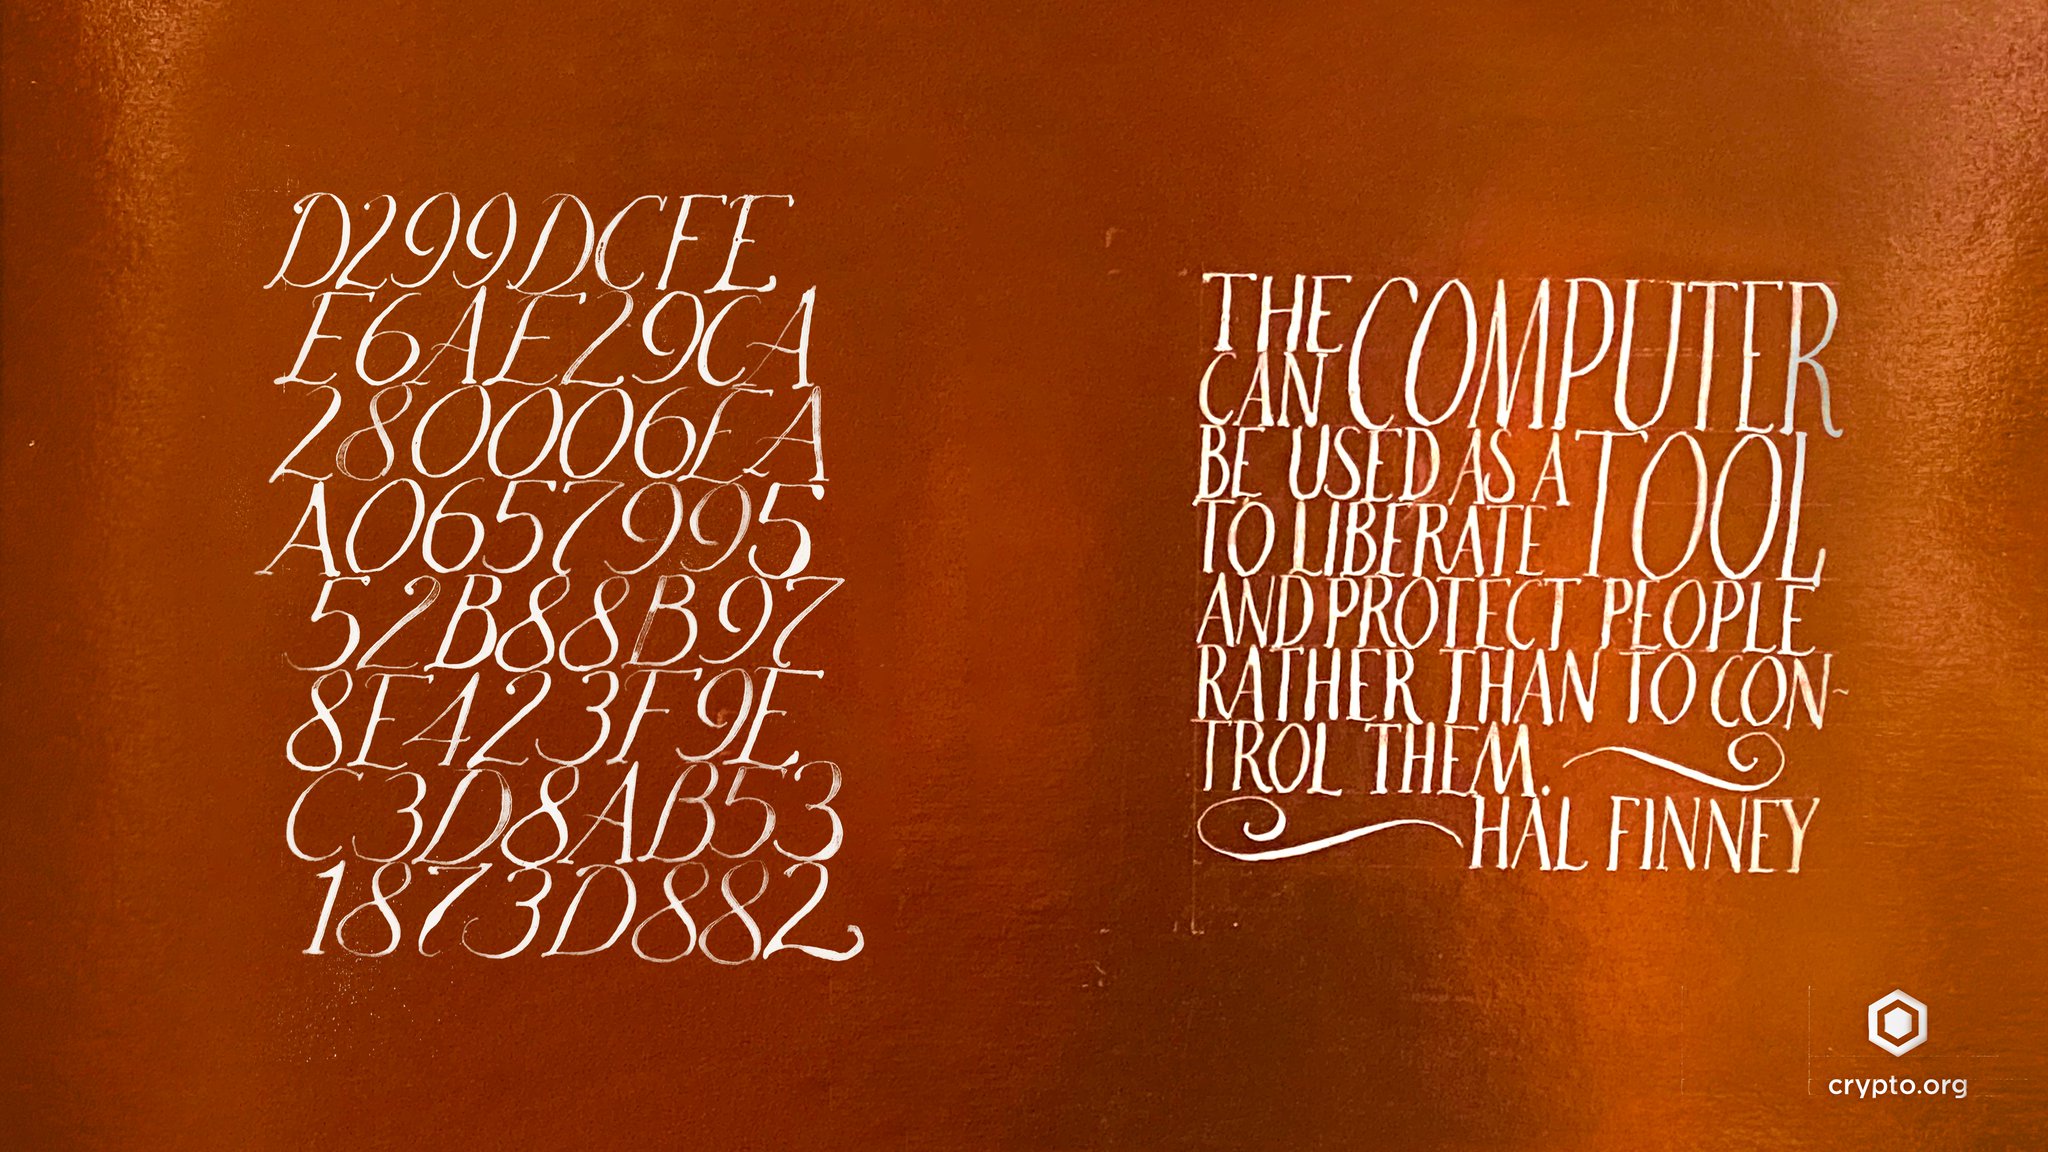 D299DCFE
E6AE29CA
280006EA
A0657995
52B88B97
8E423F9E
C3D8AB53
1873D882
THE COMPUTER
CAN
BE USED AS A TOOL
TO LIBERATE
AND PROTECT PEOPLE
RATHER THAN TO CON~
TROL THEM.
HAL FINNEY
crypto.org